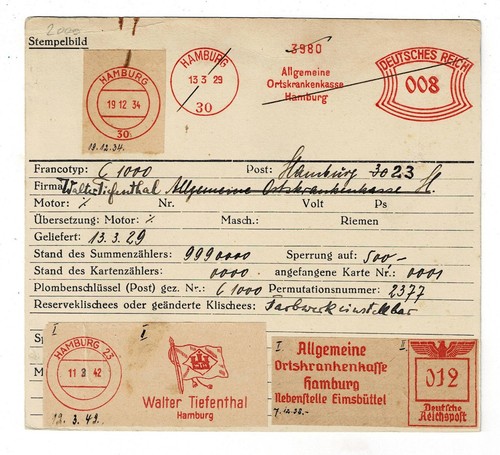 2000
Stempelbild
HAMBURG
19 12 34
30
19.12.34.
HAMBURG
13 3 29
30
3980
Allgemeine
Ortskrankenkasse
Hamburg
DEUTSCHES REICH
008
Francotyp: C 1000 Post: Hamburg 30 23
Firma Walter Tiefenthal Allgemeine Ortskrankenkasse H.
Motor: % Nr. Volt Ps
Übersetzung: Motor: % Masch.: Riemen
Geliefert: 13.3.29
Stand des Summenzählers: 9990000 Sperrung auf: 500.-
Stand des Kartenzählers: 0000. angefangene Karte Nr.: 0001
Plombenschlüssel (Post) gez. Nr.: C 1000 Permutationsnummer: 2377
Reserveklischees oder geänderte Klischees: Farbwerk einstellbar
I
HAMBURG 23
11 3 42
12. 3. 42.
I
Walter Tiefenthal
Hamburg
I.
Allgemeine
Ortskrankenkasse
Hamburg
Nebenstelle Eimsbüttel
7.12.38.-
II
012
Deutsche
Reichspost